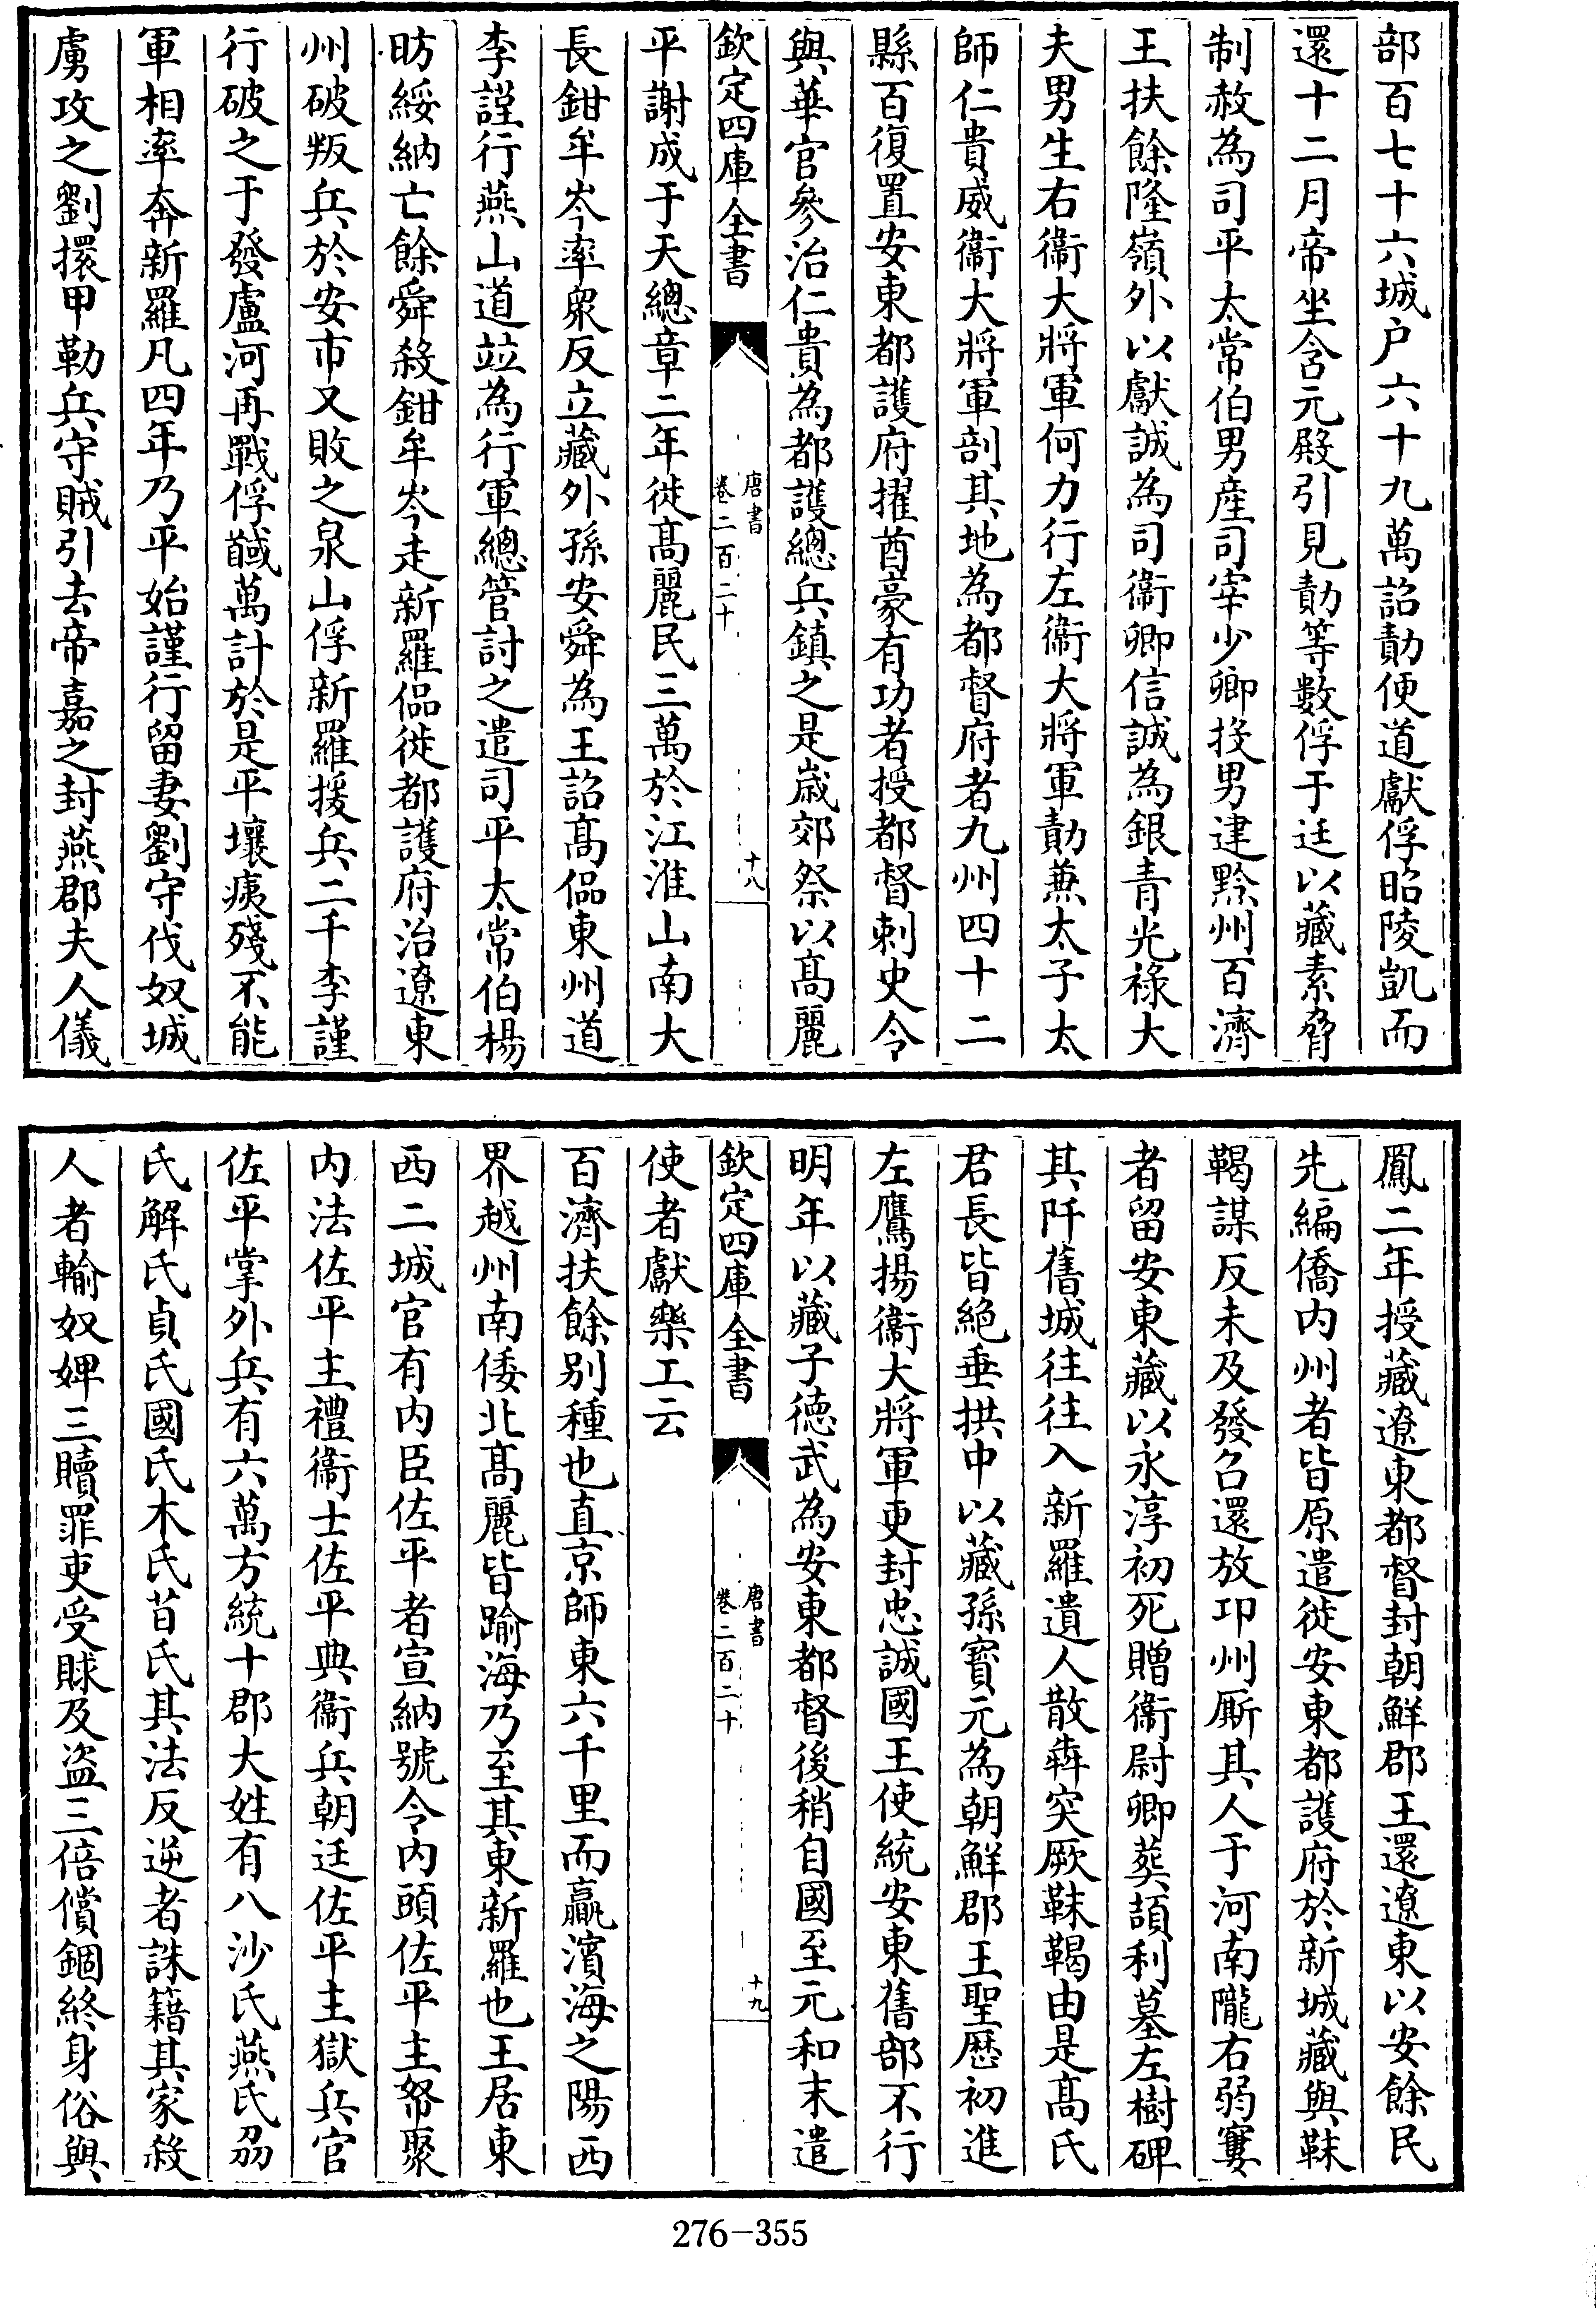 部百七十六城户六十九萬詔勣便道獻俘昭陵凱而
還十二月帝坐含元殿引見勣等數俘于廷以藏素脅
制赦為司平太常伯男產司宰少卿投男建黔州百濟
王扶餘隆嶺外以獻誠為司衞卿信誠為銀青光祿大
夫男生右衞大將軍何力行左衞大將軍勣兼太子太
師仁貴威衞大將軍剖其地為都督府者九州四十二
縣百復置安東都護府擢酋豪有功者授都督刺史令
與華官參治仁貴為都護總兵鎮之是歲郊祭以髙麗
欽定四庫全書
唐書
卷二百二十
十八
平謝成于天總章二年徙髙麗民三萬於江淮山南大
長鉗牟岑率衆反立藏外孫安舜為王詔髙偘東州道
李謹行燕山道竝為行軍總管討之遣司平太常伯楊
昉綏納亡餘舜殺鉗牟岑走新羅偘徙都護府治遼東
州破叛兵於安市又敗之泉山俘新羅援兵二千李謹
行破之于發盧河再戰俘馘萬計於是平壤痍殘不能
軍相率奔新羅凡四年乃平始謹行留妻劉守伐奴城
虜攻之劉擐甲勒兵守賊引去帝嘉之封燕郡夫人儀
鳳二年授藏遼東都督封朝鮮郡王還遼東以安餘民
先編僑内州者皆原遣徙安東都護府於新城藏與靺
鞨謀反未及發召還放卭州厮其人于河南隴右弱窶
者留安東藏以永淳初死贈衞尉卿葬頡利墓左樹碑
其阡舊城往往入新羅遺人散犇突厥靺鞨由是髙氏
君長皆絶垂拱中以藏孫寳元為朝鮮郡王聖歴初進
左鷹揚衞大將軍更封忠誠國王使統安東舊部不行
明年以藏子德武為安東都督後稍自國至元和末遣
欽定四庫全書
唐書
卷二百二十
十九
使者獻樂工云
百濟扶餘别種也直京師東六千里而贏濱海之陽西
界越州南倭北髙麗皆踰海乃至其東新羅也王居東
西二城官有内臣佐平者宣納號令内頭佐平主帑聚
内法佐平主禮衞士佐平典衞兵朝廷佐平主獄兵官
佐平掌外兵有六萬方統十郡大姓有八沙氏燕氏刕
氏解氏貞氏國氏木氏苩氏其法反逆者誅籍其家殺
人者輸奴婢三贖罪吏受賕及盗三倍償錮終身俗與
276-355